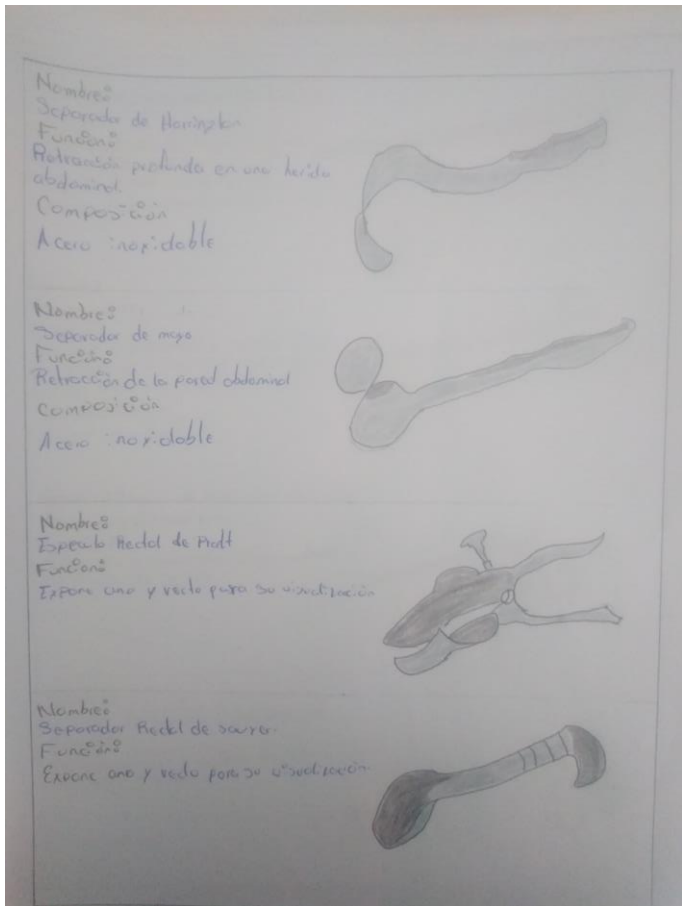 Nombre:
Separador de Harrington
Función:
Retracción profunda en una herida
abdominal.
Composición
Acero inoxidable
Nombre:
Separador de mayo
Función:
Retracción de la pared abdominal
Composición
Acero inoxidable
Nombre:
Especulo Rectal de Pratt
Función:
Expone ano y recto para su visualización
Nombre:
Separador Rectal de
Función:
Expone ano y recto para su visualización